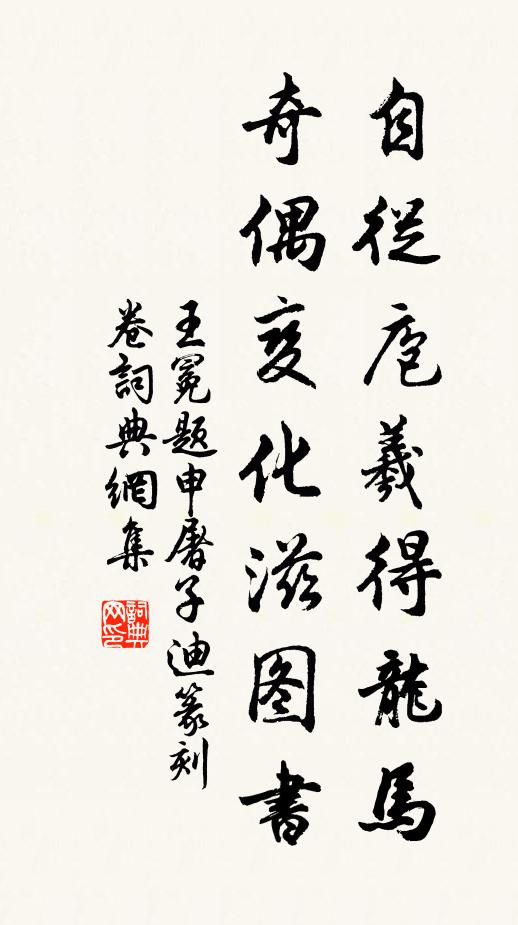 自從庖羲得龍馬
奇偶变化滋图書
王冕題申屠子迪篆刻
卷詞典網集
詞典网印